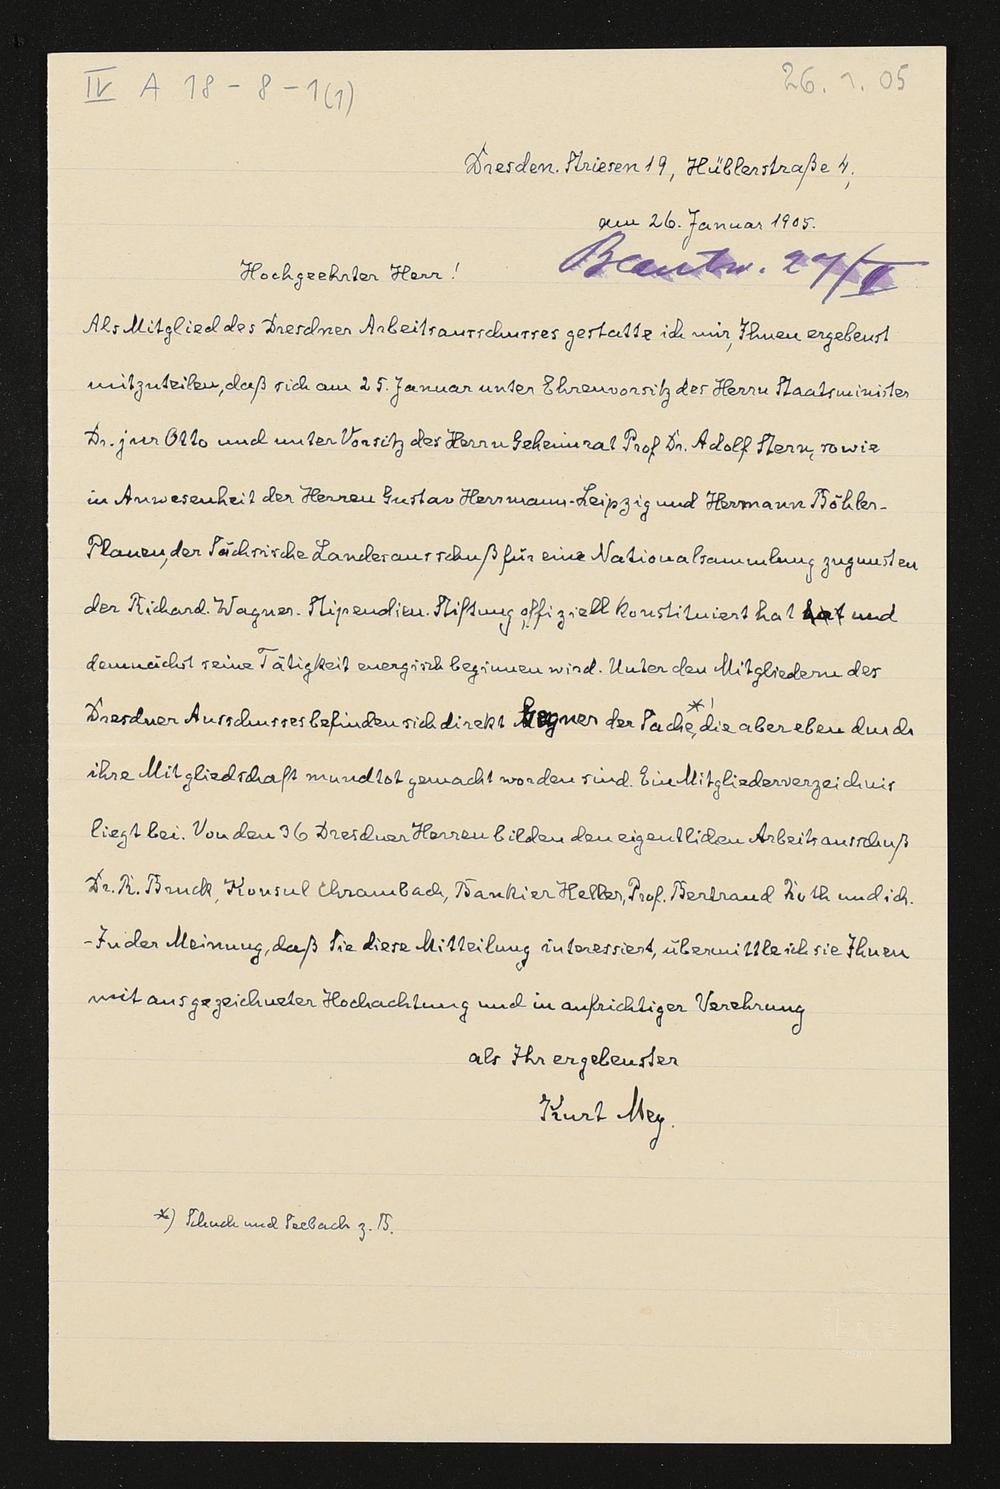 IV A 18-8-1(1)
26. 1. 05
Dresden-Striesen 19, Hüblerstraße 4,
am 26. Januar 1905.
Beantw. 27/I
Hochgeehrter Herr!
Als Mitglied des Dresdner Arbeitsausschusses gestatte ich mir, Ihnen ergebenst
mitzuteilen, daß sich am 25. Januar unter Ehrenvorsitz des Herrn Staatsminister
Dr. jur Otto und unter Vorsitz des Herrn Geheimrat Prof. Dr. Adolf Stern, sowie
in Anwesenheit der Herren Gustav Herrmann-Leipzig und Hermann Böhler-
Plauen, der Sächsische Landesausschuß für eine Nationalsammlung zugunsten
der Richard-Wagner-Stipendien-Stiftung offiziell konstituiert hat hat und
demnächst seine Tätigkeit energisch beginnen wird. Unter den Mitgliedern des
Dresdner Ausschusses befinden sich direkt Gegner der Sache,*) die aber eben durch
ihre Mitgliedschaft mundtot gemacht worden sind. Ein Mitgliederverzeichnis
liegt bei. Von den 36 Dresdner Herren bilden den eigentlichen Arbeitsausschuß
Dr. R. Bruck, Konsul Chrambach, Bankier Heller, Prof. Bertrand Roth und ich.
-In der Meinung, daß Sie diese Mitteilung interessiert, übermittle ich sie Ihnen
mit ausgezeichneter Hochachtung und in aufrichtiger Verehrung
als Ihr ergebenster
Kurt Mey.
*) Schuch und Seebach z. B.